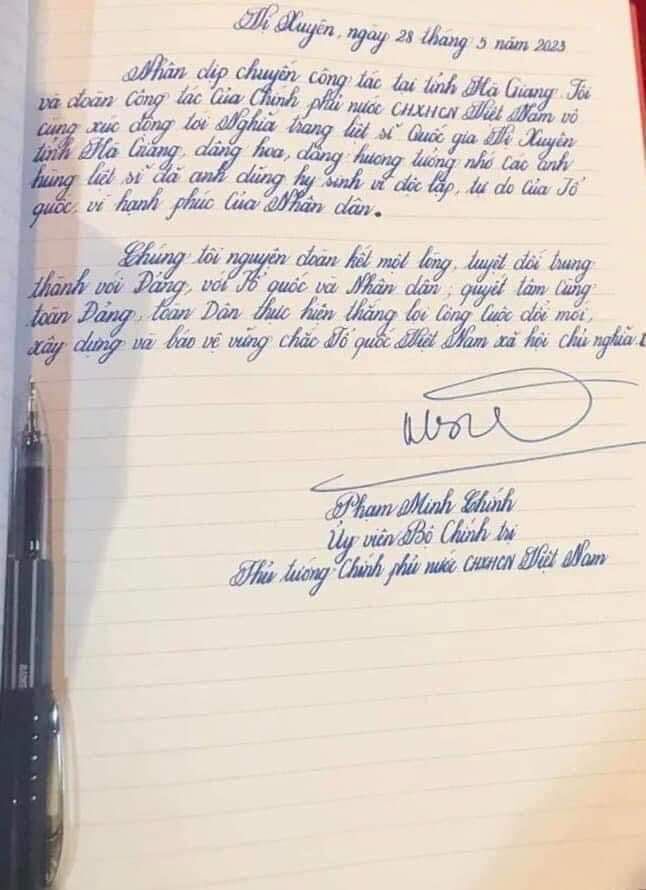 Vị Xuyên, ngày 28 tháng 5 năm 2023
Nhân dịp chuyến công tác tại tỉnh Hà Giang. Tôi
và đoàn công tác của Chính phủ nước CHXHCN Việt Nam vô
cùng xúc động tới Nghĩa trang liệt sĩ Quốc gia Vị Xuyên
tỉnh Hà Giang, dâng hoa, dâng hương tưởng nhớ các anh
hùng liệt sĩ đã anh dũng hy sinh vì độc lập, tự do của Tổ
quốc, vì hạnh phúc của Nhân dân.
Chúng tôi nguyện đoàn kết một lòng, tuyệt đối trung
thành với Đảng, với Tổ quốc và Nhân dân; quyết tâm cùng
toàn Đảng, toàn Dân thực hiện thắng lợi công cuộc đổi mới,
xây dựng và bảo vệ vững chắc Tổ quốc Việt Nam xã hội chủ nghĩa
Phạm Minh Chính
Ủy viên Bộ Chính trị
Thủ tướng Chính phủ nước CHXHCN Việt Nam